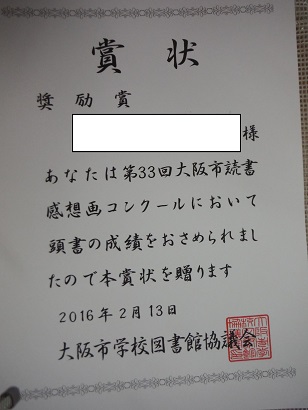 賞状
奨励賞
様
あなたは第33回大阪市読書
感想画コンクールにおいて
頭書の成績をおさめられまし
たので本賞状を贈ります
2016年2月13日
大阪市学校図書館協議会